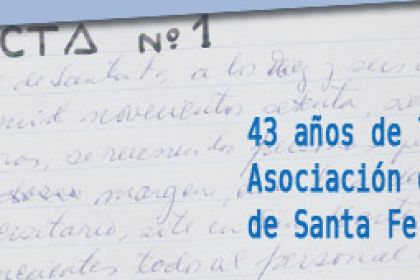 CTA Nº 1
de Santa Fe, a los diez y seis
mil novecientos setenta, se
ros, se reunen los
43 años de
margen,
Asociación
ersitario, site en
de Santa Fe
nentes todos al personal